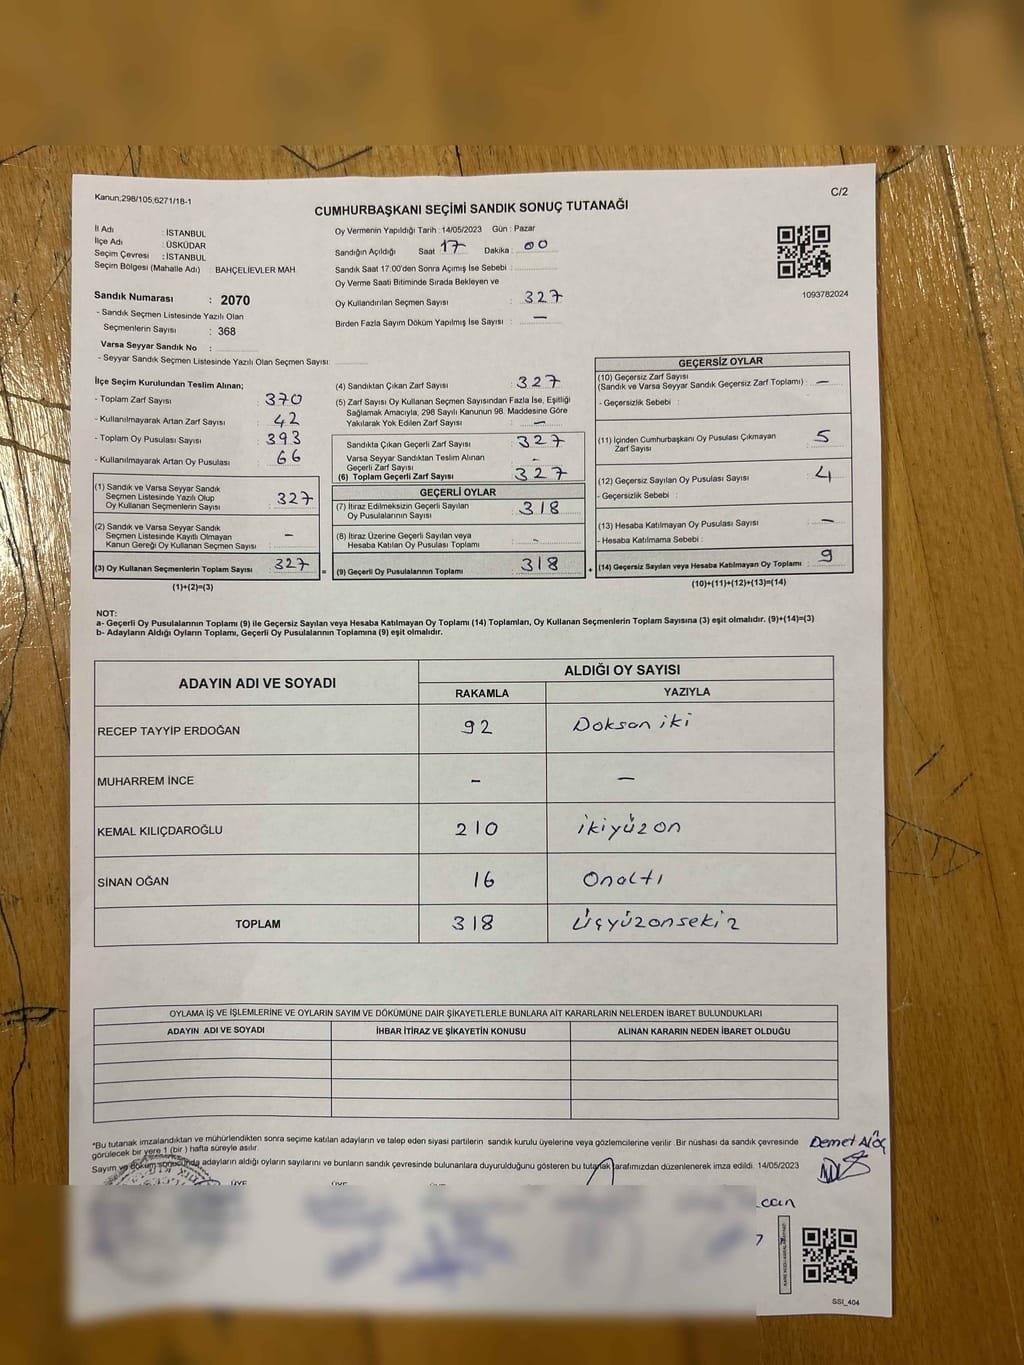 Kanun;298/105,6271/18-1
C/2
CUMHURBAŞKANI SEÇİMİ SANDIK SONUÇ TUTANAĞI
İl Adı : İSTANBUL
İlçe Adı : ÜSKÜDAR
Seçim Çevresi : İSTANBUL
Seçim Bölgesi (Mahalle Adı) : BAHÇELİEVLER MAH
Sandık Numarası : 2070
- Sandık Seçmen Listesinde Yazılı Olan
Seçmenlerin Sayısı : 368
Varsa Seyyar Sandık No :
- Seyyar Sandık Seçmen Listesinde Yazılı Olan Seçmen Sayısı:
Oy Vermenin Yapıldığı Tarih : 14/05/2023 Gün : Pazar
Sandığın Açıldığı Saat 17 Dakika : 00
Sandık Saat 17:00'den Sonra Açımış İse Sebebi :
Oy Verme Saati Bitiminde Sırada Bekleyen ve
Oy Kullandırılan Seçmen Sayısı : 327
Birden Fazla Sayım Döküm Yapılmış İse Sayısı : —
1093782024
İlçe Seçim Kurulundan Teslim Alınan;
- Toplam Zarf Sayısı : 370
- Kullanılmayarak Artan Zarf Sayısı : 42
- Toplam Oy Pusulası Sayısı : 393
- Kullanılmayarak Artan Oy Pusulası : 66
(1) Sandık ve Varsa Seyyar Sandık
Seçmen Listesinde Yazılı Olup
Oy Kullanan Seçmenlerin Sayısı : 327
(2) Sandık ve Varsa Seyyar Sandık
Seçmen Listesinde Kayıtlı Olmayan
Kanun Gereği Oy Kullanan Seçmen Sayısı : -
(3) Oy Kullanan Seçmenlerin Toplam Sayısı : 327 =
(1)+(2)=(3)
(4) Sandıktan Çıkan Zarf Sayısı : 327
(5) Zarf Sayısı Oy Kullanan Seçmen Sayısından Fazla İse, Eşitliği
Sağlamak Amacıyla, 298 Sayılı Kanunun 98. Maddesine Göre
Yakılarak Yok Edilen Zarf Sayısı : —
Sandıkta Çıkan Geçerli Zarf Sayısı : 327
Varsa Seyyar Sandıktan Teslim Alınan
Geçerli Zarf Sayısı : -
(6) Toplam Geçerli Zarf Sayısı : 327
GEÇERLİ OYLAR
(7) İtiraz Edilmeksizin Geçerli Sayılan
Oy Pusulalarının Sayısı : 318
(8) İtiraz Üzerine Geçerli Sayılan veya
Hesaba Katılan Oy Pusulası Toplamı : -
(9) Geçerli Oy Pusulalarının Toplamı : 318 +
GEÇERSİZ OYLAR
(10) Geçersiz Zarf Sayısı
(Sandık ve Varsa Seyyar Sandık Geçersiz Zarf Toplamı) : —
- Geçersizlik Sebebi :
(11) İçinden Cumhurbaşkanı Oy Pusulası Çıkmayan
Zarf Sayısı : 5
(12) Geçersiz Sayılan Oy Pusulası Sayısı : 4
- Geçersizlik Sebebi :
(13) Hesaba Katılmayan Oy Pusulası Sayısı : —
- Hesaba Katılmama Sebebi :
(14) Geçersiz Sayılan veya Hesaba Katılmayan Oy Toplamı : 9
(10)+(11)+(12)+(13)=(14)
NOT:
a- Geçerli Oy Pusulalarının Toplamı (9) ile Geçersiz Sayılan veya Hesaba Katılmayan Oy Toplamı (14) Toplamları, Oy Kullanan Seçmenlerin Toplam Sayısına (3) eşit olmalıdır. (9)+(14)=(3)
b- Adayların Aldığı Oyların Toplamı, Geçerli Oy Pusulalarının Toplamına (9) eşit olmalıdır.
ADAYIN ADI VE SOYADI ALDIĞI OY SAYISI
RAKAMLA YAZIYLA
RECEP TAYYİP ERDOĞAN 92 Doksan iki
MUHARREM İNCE - —
KEMAL KILIÇDAROĞLU 210 ikiyüzon
SİNAN OĞAN 16 Onaltı
TOPLAM 318 Üçyüzonsekiz
OYLAMA İŞ VE İŞLEMLERİNE VE OYLARIN SAYIM VE DÖKÜMÜNE DAİR ŞİKAYETLERLE BUNLARA AİT KARARLARIN NELERDEN İBARET BULUNDUKLARI
ADAYIN ADI VE SOYADI İHBAR İTİRAZ VE ŞİKAYETİN KONUSU ALINAN KARARIN NEDEN İBARET OLDUĞU
*Bu tutanak imzalandıktan ve mühürlendikten sonra seçime katılan adayların ve talep eden siyasi partilerin sandık kurulu üyelerine veya gözlemcilerine verilir .Bir nüshası da sandık çevresinde
görülecek bir yere 1 (bir ) hafta süreyle asılır.
Sayım ve döküm sonucunda adayların aldığı oyların sayılarını ve bunların sandık çevresinde bulunanlara duyurulduğunu gösteren bu tutanak tarafımızdan düzenlenerek imza edildi. 14/05/2023
Demet
ÜYE
SSI_404